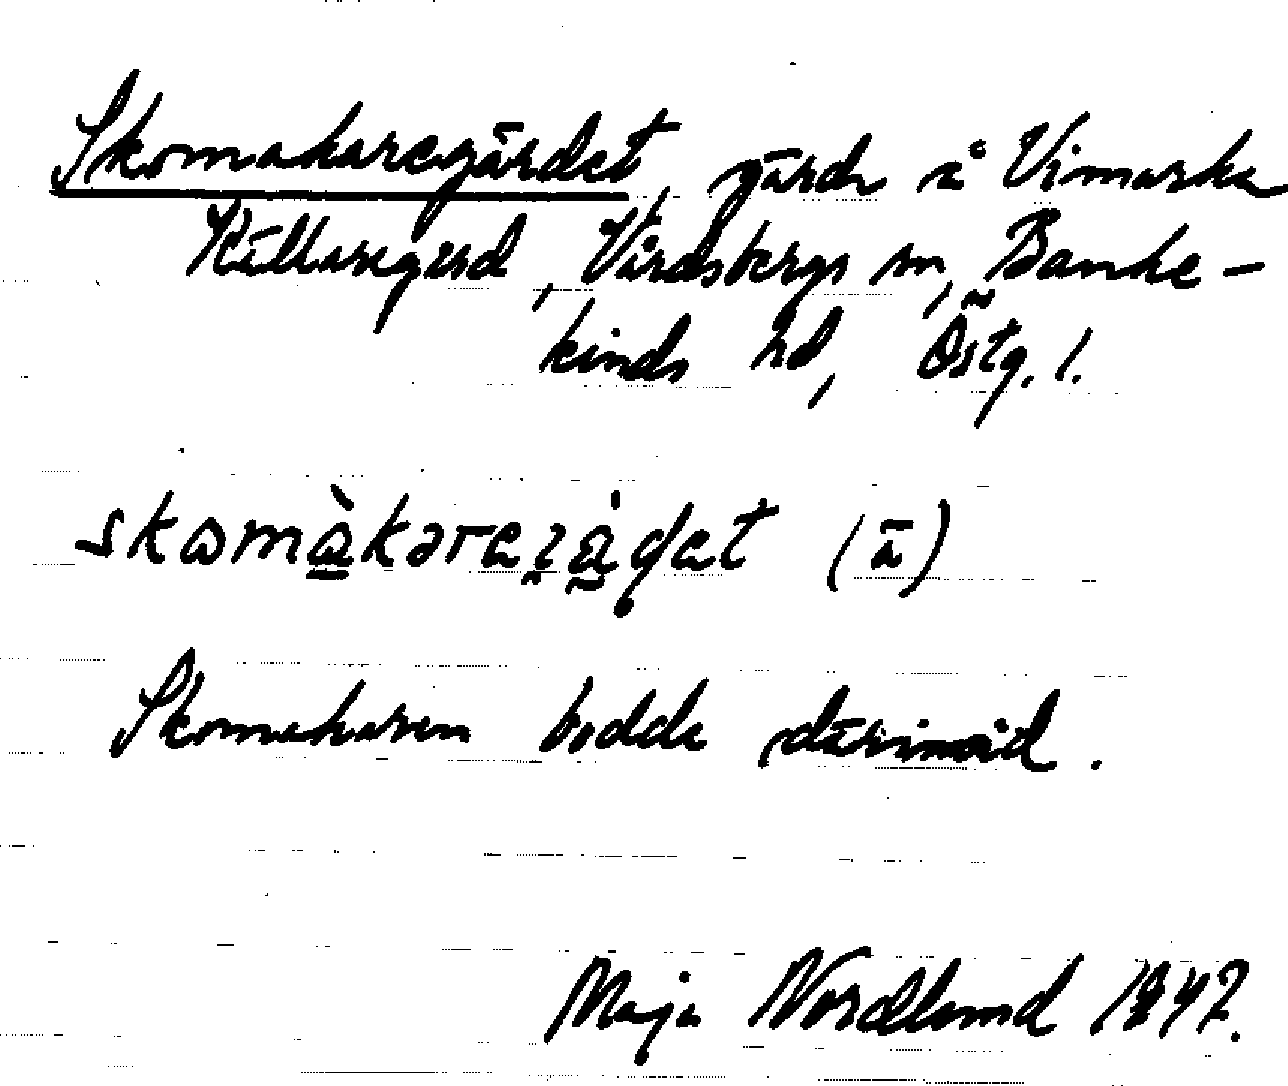 Skomakaregärdet, gärde å Vimarka
Källaregård, Vårdsbergs sn, Banke-
kinds hd, Östg. l.
skomàkaregädet (ä)
Skomakaren bodde därinvid.
Maja Nordlund 1947.